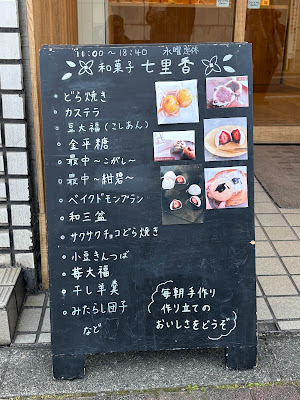 11:00〜18:40 水曜定休
和菓子 七里香
・どら焼き
・カステラ
・豆大福(こしあん)
・金平糖
・最中〜こがし〜
・最中〜紺碧〜
・ベイクドモンブラン
・和三盆
・サクサクチョコどら焼き
・小豆きんつば
・苺大福
・干し羊羹
・みたらし団子
など
毎朝手作り
作り立ての
おいしさをどうぞ